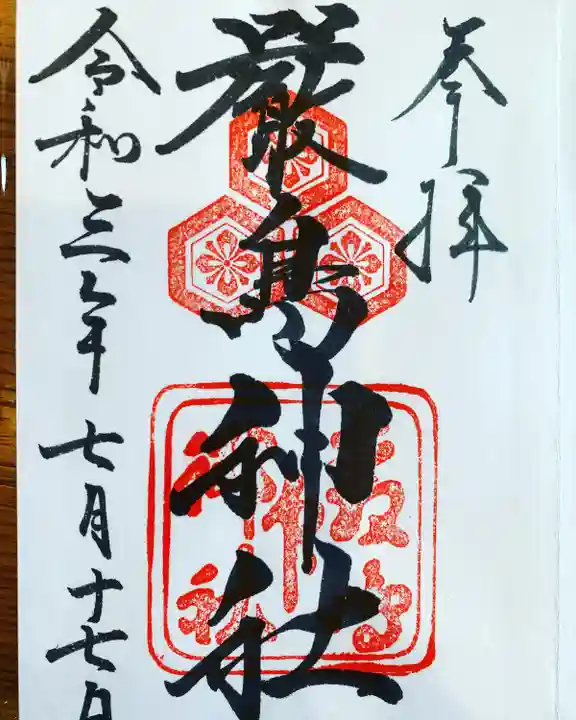 奉拝
嚴島神社
令和三年七月十七日